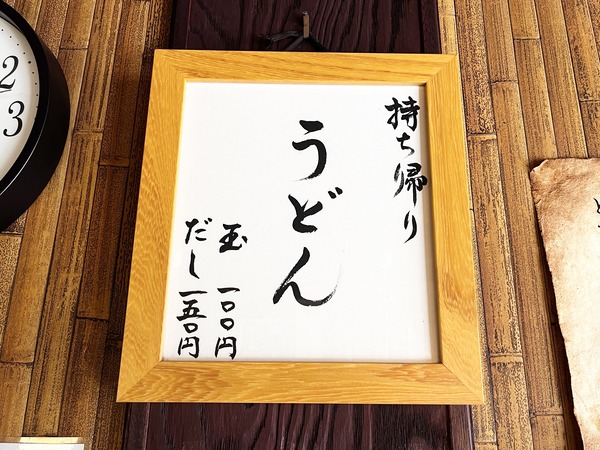 持ち帰り
うどん
玉 一〇〇円
だし 一五〇円
2
3